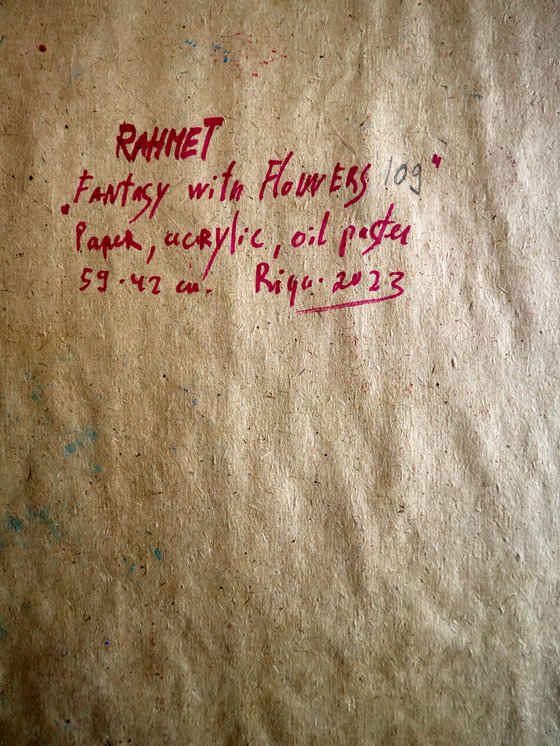 RAHMET
„FANTASY with FLOWERS 109"
Paper, acrylic, oil pastel
59·42 cm. Riga·2023